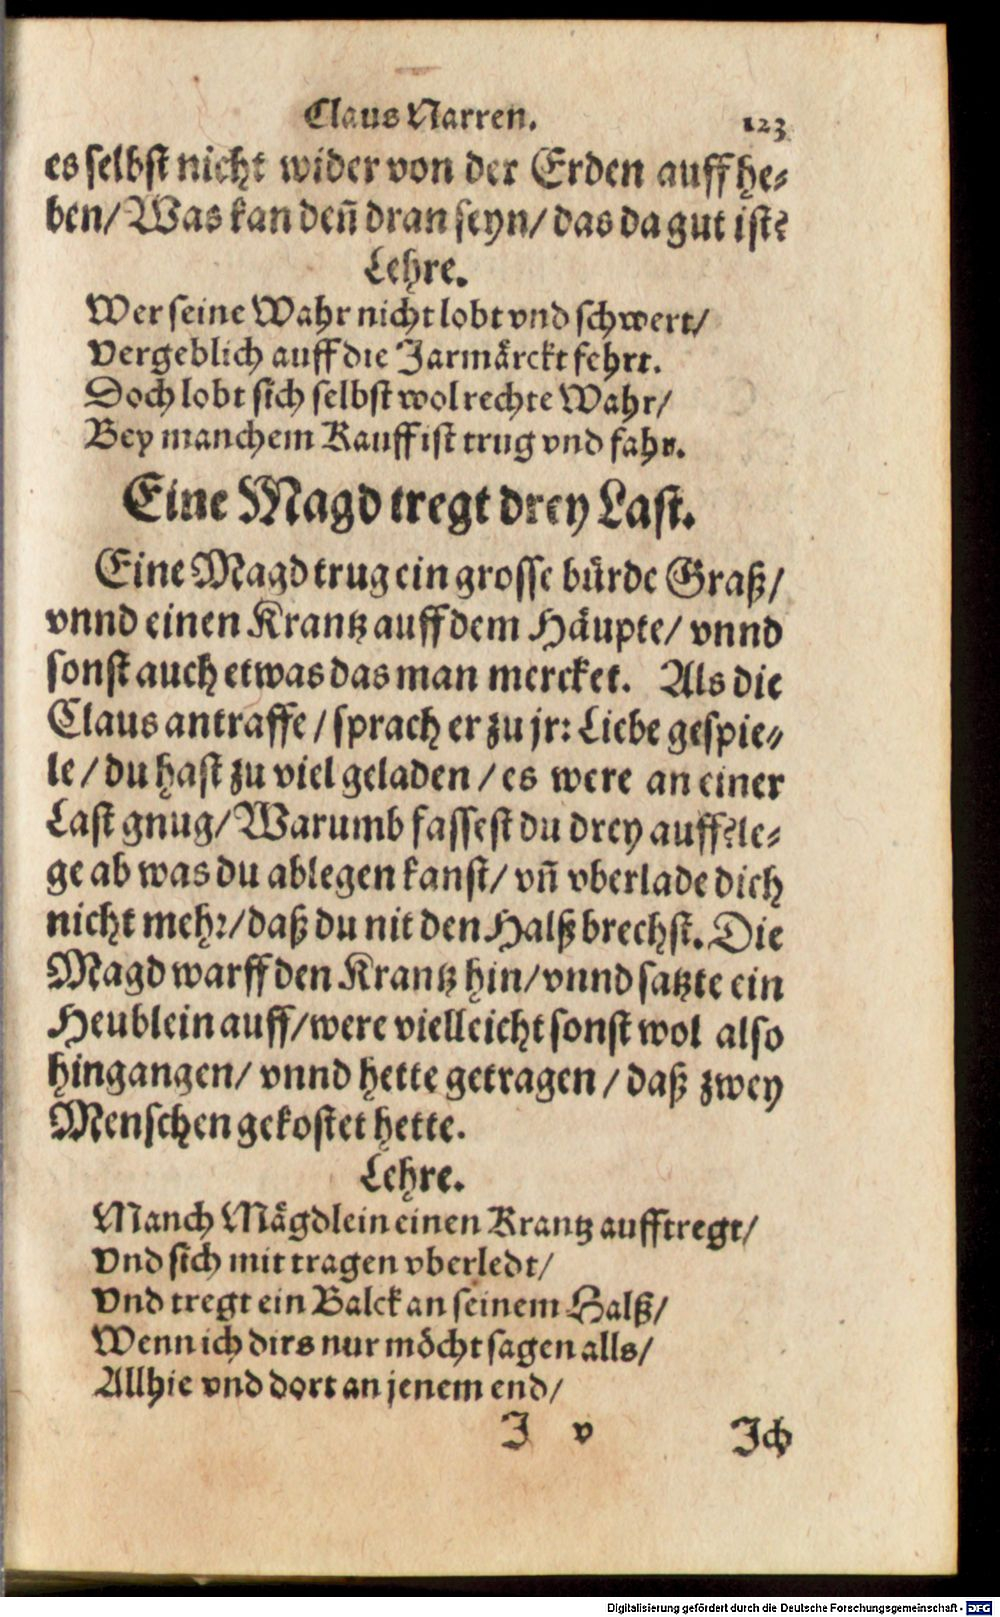 Claus Narren. 123
es selbst nicht wider von der Erden auff he-
ben/ Was kan deñ dran seyn/ das da gut ist?
Lehre.
Wer seine Wahr nicht lobt vnd schwert/
Vergeblich auff die Jarmärckt fehrt.
Doch lobt sich selbst wol rechte Wahr/
Bey manchem Kauff ist trug vnd fahr.
Eine Magd tregt drey Last.
Eine Magd trug ein grosse bürde Graß/
vnnd einen Krantz auff dem Häupte/ vnnd
sonst auch etwas das man mercket. Als die
Claus antraffe / sprach er zu jr: Liebe gespie-
le / du hast zu viel geladen / es were an einer
Last gnug/ Warumb fassest du drey auff? le-
ge ab was du ablegen kanst/ vñ vberlade dich
nicht mehr/ daß du nit den Halß brechst. Die
Magd warff den Krantz hin/ vnnd satzte ein
Heublein auff/ were vielleicht sonst wol also
hingangen/ vnnd hette getragen / daß zwey
Menschen gekostet hette.
Lehre.
Manch Mägdlein einen Krantz aufftregt/
Vnd sich mit tragen vberledt/
Vnd tregt ein Balck an seinem Halß/
Wenn ich dirs nur möcht sagen alls/
Allhie vnd dort an jenem end/
J v Jch
Digitalisierung gefördert durch die Deutsche Forschungsgemeinschaft - DFG